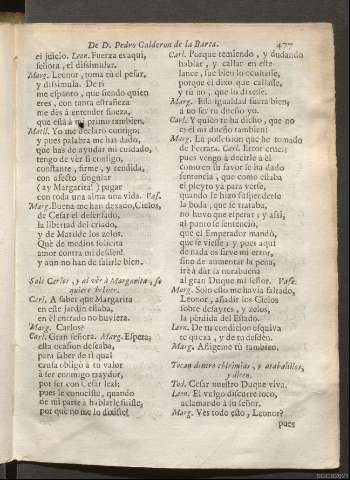 De D. Pedro Calderon de la Barca. 477
el juicio. Leon. Fuerza es aqui,
señora, el dissimular.
Marg. Leonor, toma tù el pesar,
y dissimula. De ti
me espanto, que siendo quien
eres, con tanta estrañeza
me dès à entender fineza,
que està à mi primo tambien.
Matil. Yo me declaro contigo;
y pues palabra me has dado,
que has de ayudar mi cuidado,
tengo de vèr si consigo,
constante, firme, y rendida,
con afecto singular
(ay Margarita!) pagar
con toda una alma una vida. Vas.
Marg. Buena me han dexado, Cielos,
de Cesar el desenfado,
la libertad del criado,
y de Matilde los zelos.
Què de medios solicita
amor contra mi desdèn!
y aun no han de salirle bien.
Sale Carlos, y al vèr à Margarita, se
quiere bolver.
Carl. A saber que Margarita
en este jardin estaba,
en èl entrado no huviera.
Marg. Carlos?
Carl. Gran señora. Marg. Espera;
esta ocasion deseaba,
para saber de ti qual
causa obligò à tu valor
à ser conmigo traydor,
por ser con Cesar leal;
pues le conociste, quando
de mi parte à hablarle fuiste,
por què no me lo dixiste?
Carl. Porque temiendo, y dudando
hablar, y callar en este
lance, fue bien lo ocultasse,
porque èl dixo que callasse,
y tù no, que lo dixesse.
Marg. Essa igualdad fuera bien,
à no ser tu dueño yo.
Carl. Y quien te ha dicho, que no
es èl mi dueño tambien?
Marg. La possession que he tomado
de Ferrara. Carl. Error cruel;
pues vengo à decirle à èl
como en su favor se ha dado
sentencia, que como estaba
el pleyto yà para verse,
quando se hizo suspenderle
la boda, que se trataba,
no huvo que esperar; y assi,
al punto se sentenciò,
que el Emperador mandò,
que se viesse; y pues aqui
de nada os sirve mi error,
sino de aumentar la pena,
irè à dàr la norabuena
al gran Duque mi señor. Vase.
Marg. Solo esto me havia faltado,
Leonor, añadir los Cielos
sobre desayres, y zelos,
la pèrdida del Estado.
Leon. De tu condicion esquiva
te quexa, y de tu desdèn.
Marg. Afligeme tù tambien.
Tocan dentro chirimias, y atabalillos,
y dicen.
Tod. Cesar nuestro Duque viva.
Leon. El vulgo discurre loco,
aclamando à su señor.
Marg. Vès todo esto, Leonor?
pues